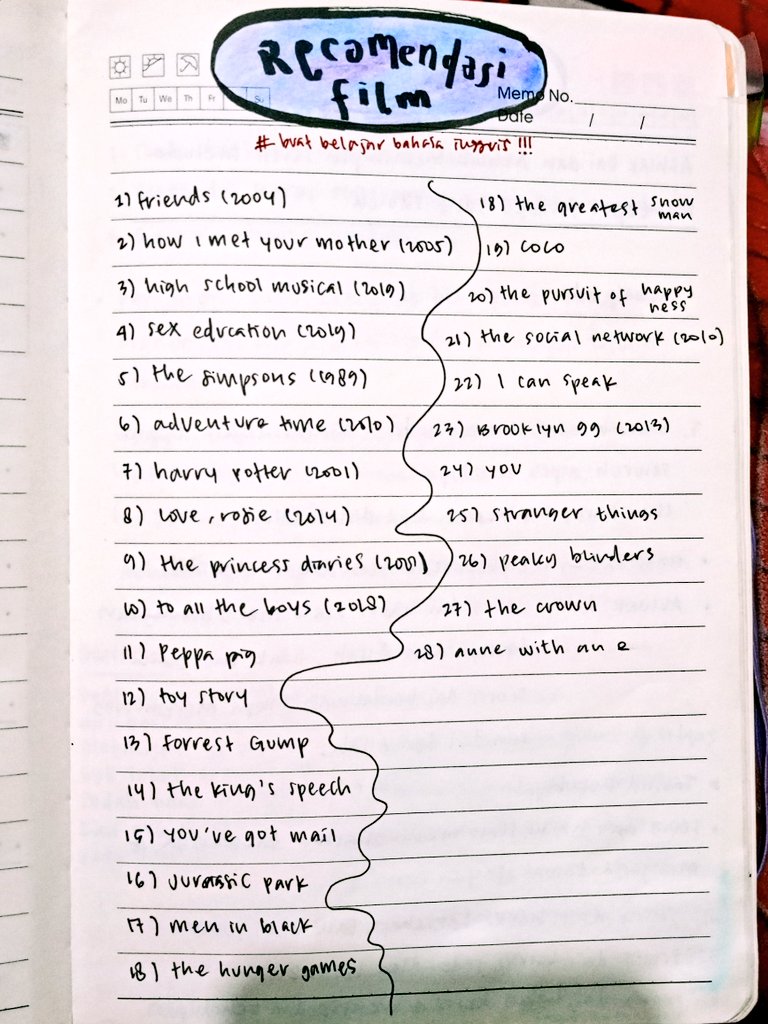 Recomendasi
film
Mo Tu We Th Fr Su
Memo No.
Date / /
# buat belajar bahasa inggris !!!
1) friends (2004)
2) how i met your mother (2005)
3) high school musical (2019)
4) sex education (2019)
5) the simpsons (1989)
6) adventure time (2010)
7) harry potter (2001)
8) love, rosie (2014)
9) the princess diaries (2001)
10) to all the boys (2018)
11) Peppa pig
12) toy story
13) Forrest Gump
14) the king's speech
15) you've got mail
16) Jurassic park
17) men in black
18) the hunger games
18) the greatest show man
19) COCO
20) the pursuit of happy ness
21) the social network (2010)
22) I can speak
23) Brooklyn 99 (2013)
24) you
25) stranger things
26) peaky blinders
27) the crown
28) anne with an e